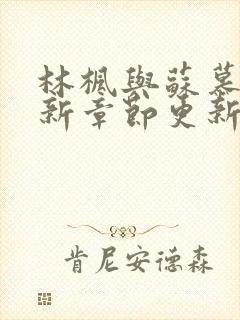 林楓與蘇慕
新章節更新
肯尼安德森